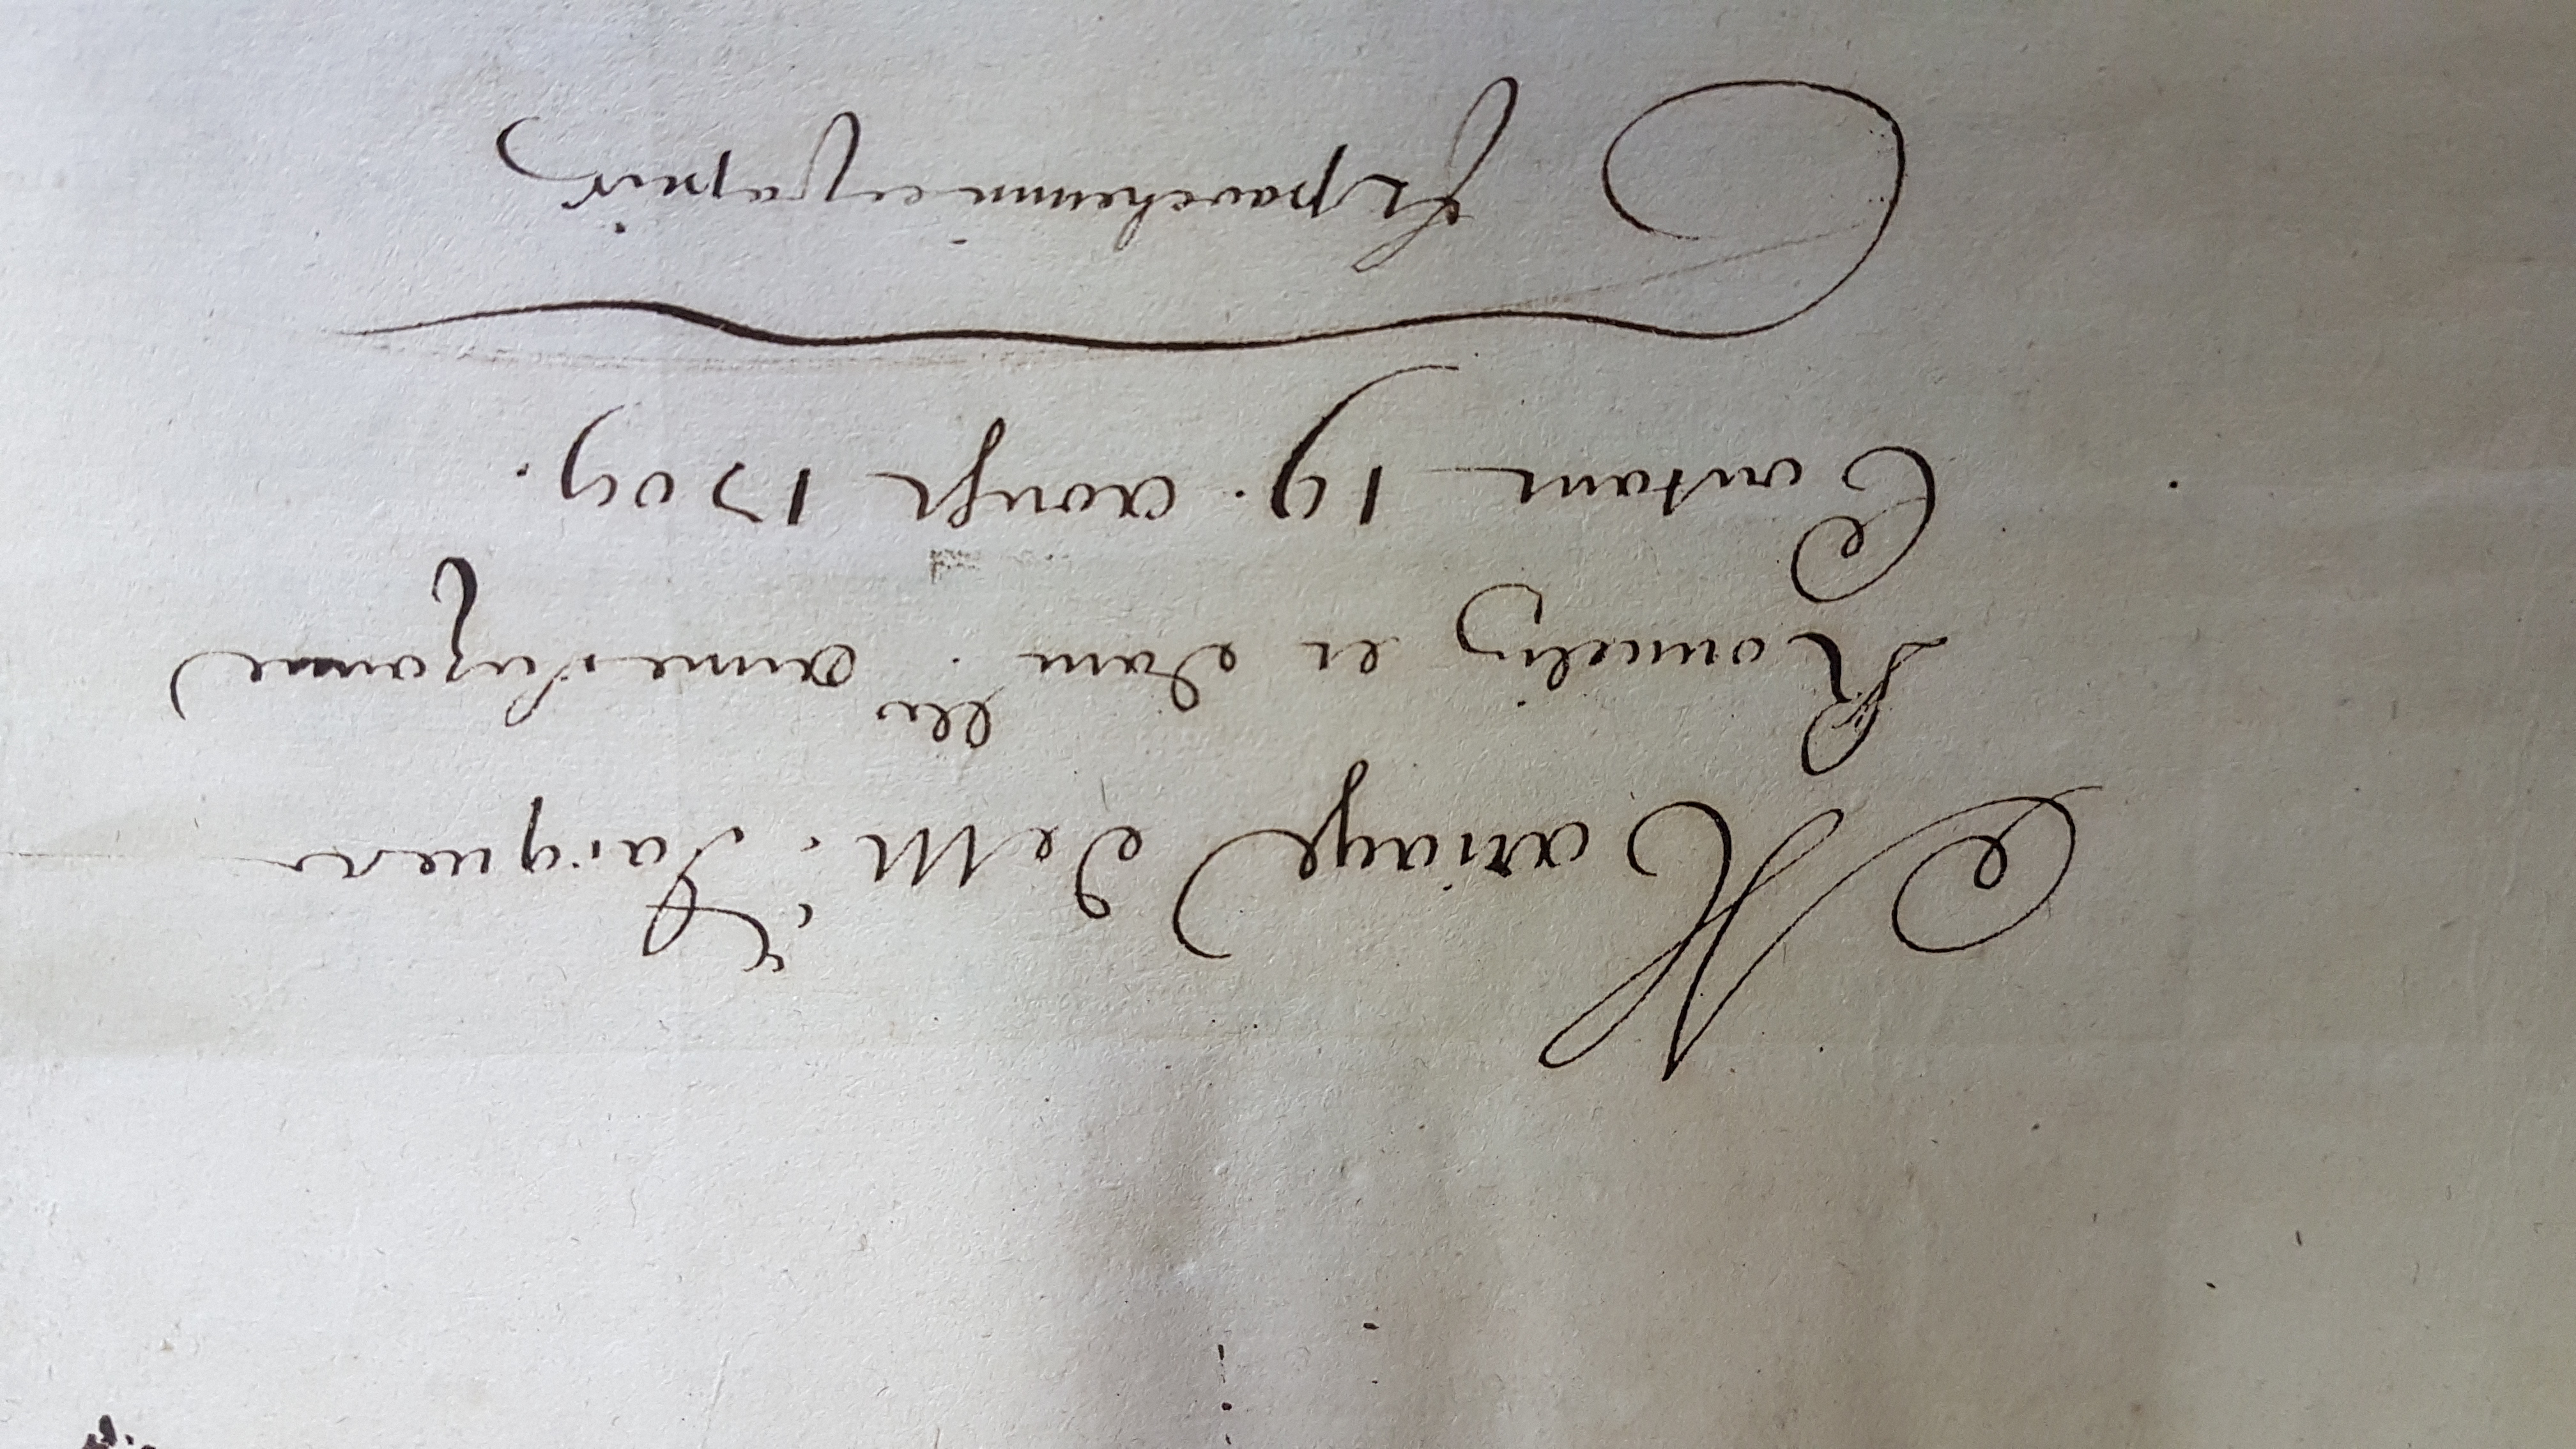 Mariage de M.r Jacques
Rouuelin et dam.lle anne Suzanne
Coutant 19. aoust 1709.
parchemin et papier